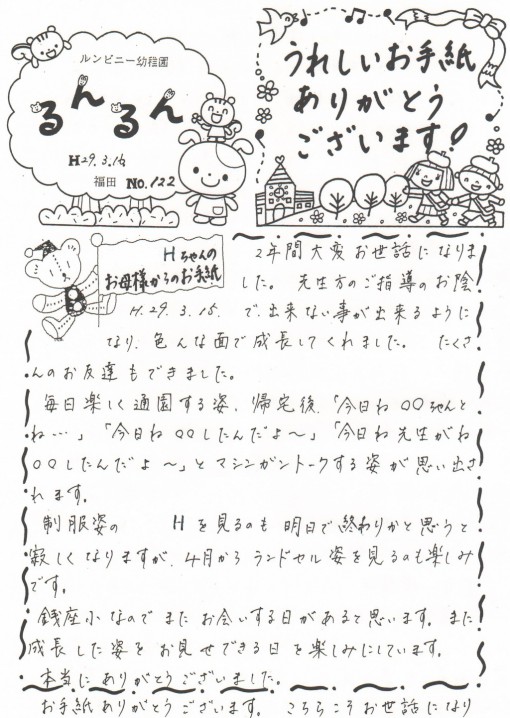 ルンビニー幼稚園
るんるん
H29.3.16
福田 No.122
うれしいお手紙
ありがとう
ございます!
Hちゃんの
お母様からのお手紙
H.29.3.15.
2年間大変お世話になりま
した。先生方のご指導のお陰
で、出来ない事が出来るように
なり、色んな面で成長してくれました。 たくさ
んのお友達もできました。
毎日楽しく通園する姿、帰宅後、「今日ね〇〇ちゃんと
ね…」「今日ね〇〇したんだよ〜」「今日ね先生がね
〇〇したんだよ〜」とマシンガントークする姿が思い出さ
れます。
制服姿の Hを見るのも明日で終わりかと思うと
寂しくなりますが、4月からランドセル姿を見るのも楽しみ
です。
銭座小なのでまたお会いする日があると思います。また
成長した姿をお見せできる日を楽しみにしています。
本当にありがとうございました。
お手紙ありがとうございます。 こちらこそお世話になり